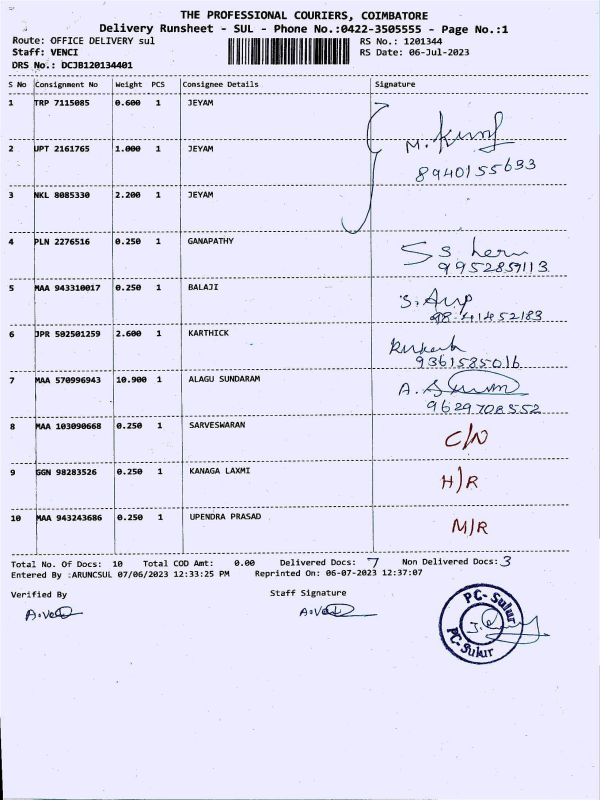 THE PROFESSIONAL COURIERS, COIMBATORE
Delivery Runsheet - SUL - Phone No.:0422-3505555 - Page No.:1
Route: OFFICE DELIVERY sul RS No.: 1201344
Staff: VENCI RS Date: 06-Jul-2023
DRS No.: DCJB120134401
S No Consignment No Weight PCS Consignee Details Signature
1 TRP 7115085 0.600 1 JEYAM
2 UPT 2161765 1.000 1 JEYAM
8940155693
3 NKL 8085330 2.200 1 JEYAM
4 PLN 2276516 0.250 1 GANAPATHY
9952859113
5 MAA 943310017 0.250 1 BALAJI
6 JPR 502501259 2.600 1 KARTHICK
9361585016
7 MAA 570996943 10.900 1 ALAGU SUNDARAM
9629708552
8 MAA 103090668 0.250 1 SARVESWARAN C/N
9 GGN 98283526 0.250 1 KANAGA LAXMI H/R
10 MAA 943243686 0.250 1 UPENDRA PRASAD M/R
Total No. Of Docs: 10 Total COD Amt: 0.00 Delivered Docs: 7 Non Delivered Docs: 3
Entered By :ARUNCSUL 07/06/2023 12:33:25 PM Reprinted On: 06-07-2023 12:37:07
Verified By Staff Signature
PC-Sulur
PC-Sulur